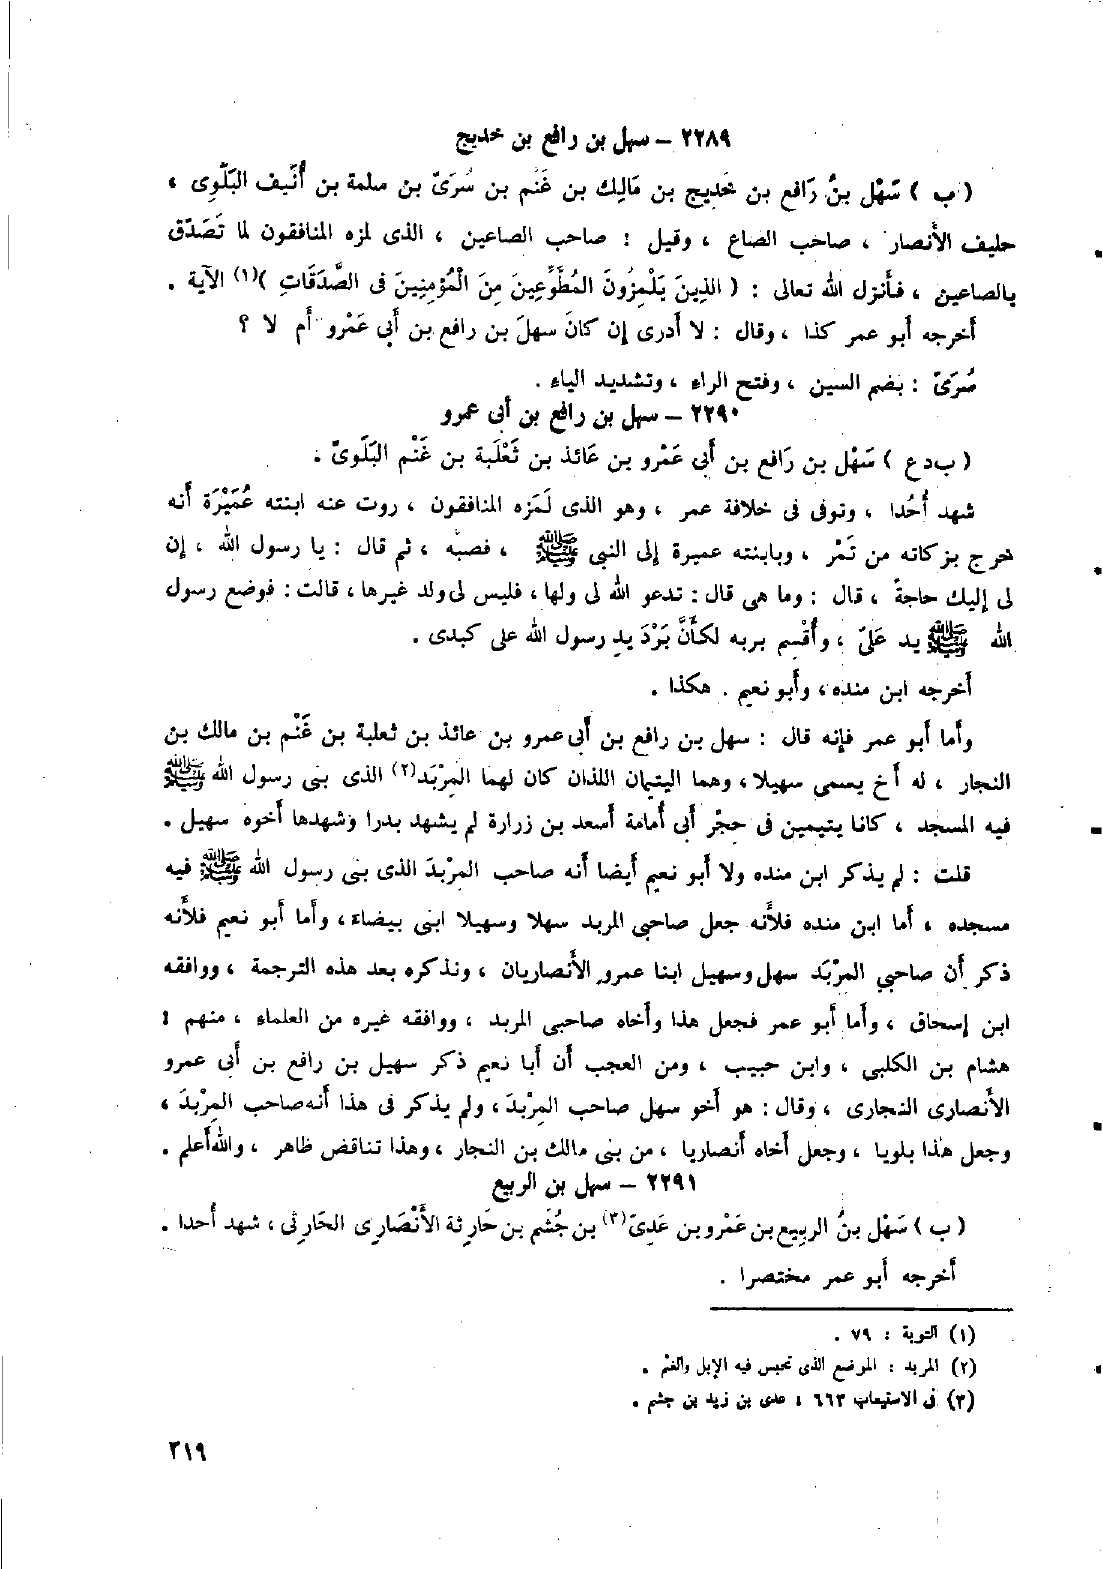 ٢٢٨٩ – سهل بن رافع بن خديج
( ب ) سَهْل بنُ رَافع بن خَديج بن مَالِك بن غَنْم بن سُرَىّ بن سلمة بن أُنَيف البَلَوِى ،
حليف الأنصار ، صاحب الصاع ، وقيل : صاحب الصاعين ، الذى لمزه المنافقون لما تَصَدّق
بالصاعين ، فأنزل الله تعالى : ( الذِينَ يَلْمِزُونَ المُطَّوِّعِينَ مِنَ الْمُؤمِنِينَ فى الصَّدَقَاتِ )(١) الآية .
أخرجه أبو عمر كذا ، وقال : لا أدرى إن كانَ سهلَ بن رافع بن أَبى عَمْرو أم لا ؟
سُرَىّ : بضم السين ، وفتح الراء ، وتشديد الياء .
٢٢٩٠ – سهل بن رافع بن أبى عمرو
( ب د ع ) سَهْل بن رَافع بن أَبِى عَمْرو بن عَائذ بن ثَعْلَبة بن غَنْم البَلَوىّ .
شهد أُحُدا ، وتوفى فى خلافة عمر ، وهو الذى لَمَزه المنافقون ، روت عنه ابنته عُمَيْرَة أنه
خرج بزكاته من تَمْر ، وبابنته عميرة إلى النبى ﷺ ، فصبّه ، ثم قال : يا رسول الله ، إن
لى إليك حاجةً ، قال : وما هى قال : تدعو الله لى ولها ، فليس لى ولد غيرها ، قالت : فوضع رسول
الله ﷺ يد عَلَىّ ، وأُقْسِم بربه لكأَنَّ بَرْدَ يدِ رسول الله على كبدى .
أخرجه ابن منده ، وأبو نعيم . هكذا .
وأما أبو عمر فإنه قال : سهل بن رافع بن أبى عمرو بن عائذ بن ثعلبة بن غَنْم بن مالك بن
النجار ، له أخ يسمى سهيلا ، وهما اليتيمان اللذان كان لهما المِرْبَد(٢) الذى بنى رسول الله ﷺ
فيه المسجد ، كانا يتيمين فى حِجْر أبى أمامة أسعد بن زرارة لم يشهد بدرا وشهدها أخوه سهيل .
قلت : لم يذكر ابن منده ولا أبو نعيم أيضا أنه صاحب المِرْبَد الذى بنى رسول الله ﷺ فيه
مسجده ، أما ابن منده فلأنه جعل صاحبى المربد سهلا وسهيلا ابنى بيضاء ، وأما أبو نعيم فلأنه
ذكر أن صاحبي المِرْبَد سهل وسهيل ابنا عمرو الأنصاريان ، ونذكره بعد هذه الترجمة ، ووافقه
ابن إسحاق ، وأما أبو عمر فجعل هذا وأخاه صاحبى المربد ، ووافقه غيره من العلماء ، منهم :
هشام بن الكلبى ، وابن حبيب ، ومن العجب أن أبا نعيم ذكر سهيل بن رافع بن أبى عمرو
الأنصارى النجارى ، وقال : هو أخو سهل صاحب المِرْبدَ ، ولم يذكر فى هذا أنه صاحب المِرْبدَ ،
وجعل هذا بلويا ، وجعل أخاه أنصاريا ، من بنى مالك بن النجار ، وهذا تناقض ظاهر ، والله أعلم .
٢٢٩١ – سهل بن الربيع
( ب ) سَهْل بنُ الربِيع بن عَمْرو بن عَدِىّ(٣) بن جُشَم بن حَارِثة الأنْصَارِى الحَارِثى ، شهد أحدا .
أخرجه أبو عمر مختصرا .
(١) التوبة : ٧٩ .
(٢) المربد : الموضع الذى تحبس فيه الإبل والغنم .
(٣) فى الاستيعاب ٦٦٣ : عدى بن زيد بن جشم .
٣١٩